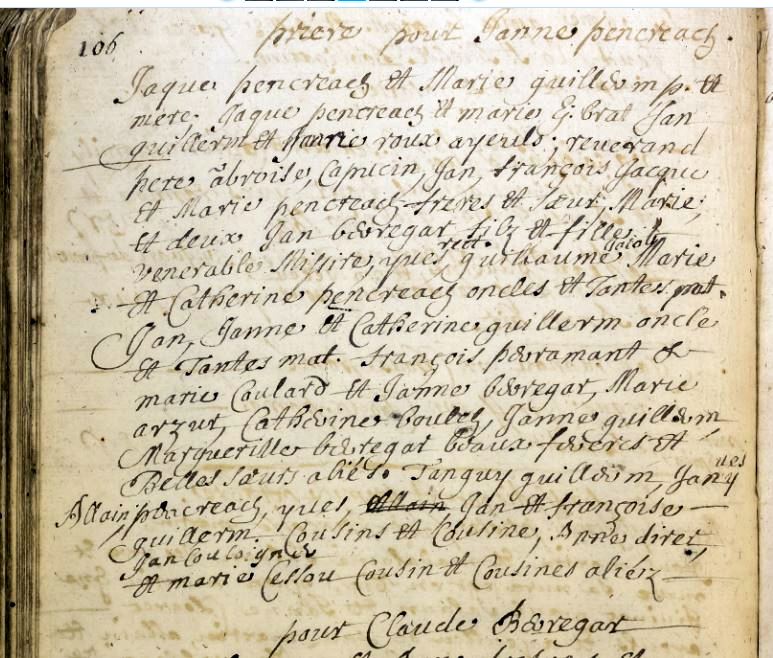 106
priere pour Janne pencreach.
Jaque pencreach et Marie guillerm p. et
mere. Jaque pencreach et marie Jan
guillerm et roux ayeuls; reverand
pere abroise, Capucin, Jan, françois, Jacque
et Marie pencreach freres et sœur, Marie,
et deux Jan beuregar filz et fille.
venerable Missire, yves rect. guillaume Jacob Marie
et Catherine pencreach oncles et Tantes pat.
Jan, Janne et Catherine guillerm oncle
et Tantes mat. françois peuramant et
marie Coulard et Janne beuregar, Marie
arzur, Catherine Janne guillerm
beuregar beaux freres et
Belles sœurs aliés. Tanguy guillerm, Jan
Allain pencreach, yves, Allain Jan et françoise
guillerm. Cousins et Cousine, Anne
Jan
et marie Cessou Cousin et Cousines aliéz
pour Claude Beuregar